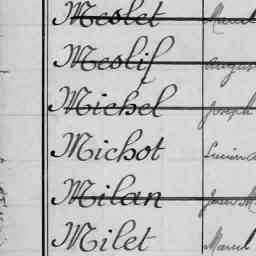 Meslet Marcel
Meslif August
Michel Joseph
Michot Lucien
Milan
Milet Marcel